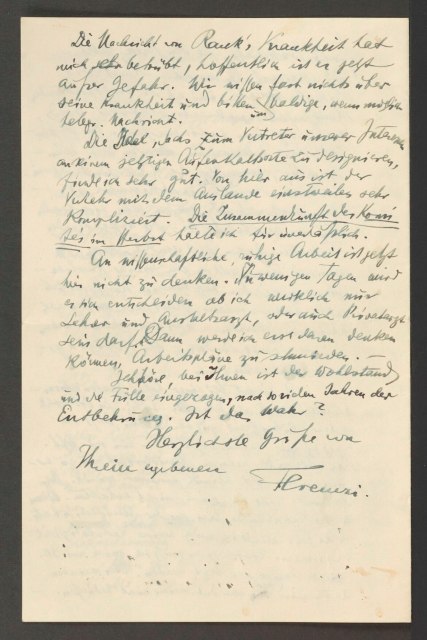 Die Nachricht von Rank's Krankheit hat
mich sehr betrübt, hoffentlich ist er jetzt
außer Gefahr. Wir wissen fast nichts über
seine Krankheit und bitten um baldige, wenn möglich
telegr. Nachricht.
Die Idee, Sachs zum Vertreter unserer Interessen
an seinem jetzigen Aufenthaltsorte zu designieren,
finde ich sehr gut. Von hier aus ist der
Verkehr mit dem Auslande einstweilen sehr
kompliziert. Die Zusammenkunft des Komi-
tés im Herbst halte ich für unerläßlich.
An wissenschaftliche, ruhige Arbeit ist jetzt
hier nicht zu denken. In wenigen Tagen wird
es sich entscheiden ob ich wirklich nur
Lehrer und Anstaltsarzt, oder auch Privatarzt
sein darf. Dann werde ich erst daran denken
können, Arbeitspläne zu schmieden. –
bei Ihnen ist der Wohlstand
und die Fülle eingezogen, nach so vielen Jahren der
Entbehrung. Ist das wahr?
Herzlichste Grüße von
Ihrem ergebenen
Ferenczi.